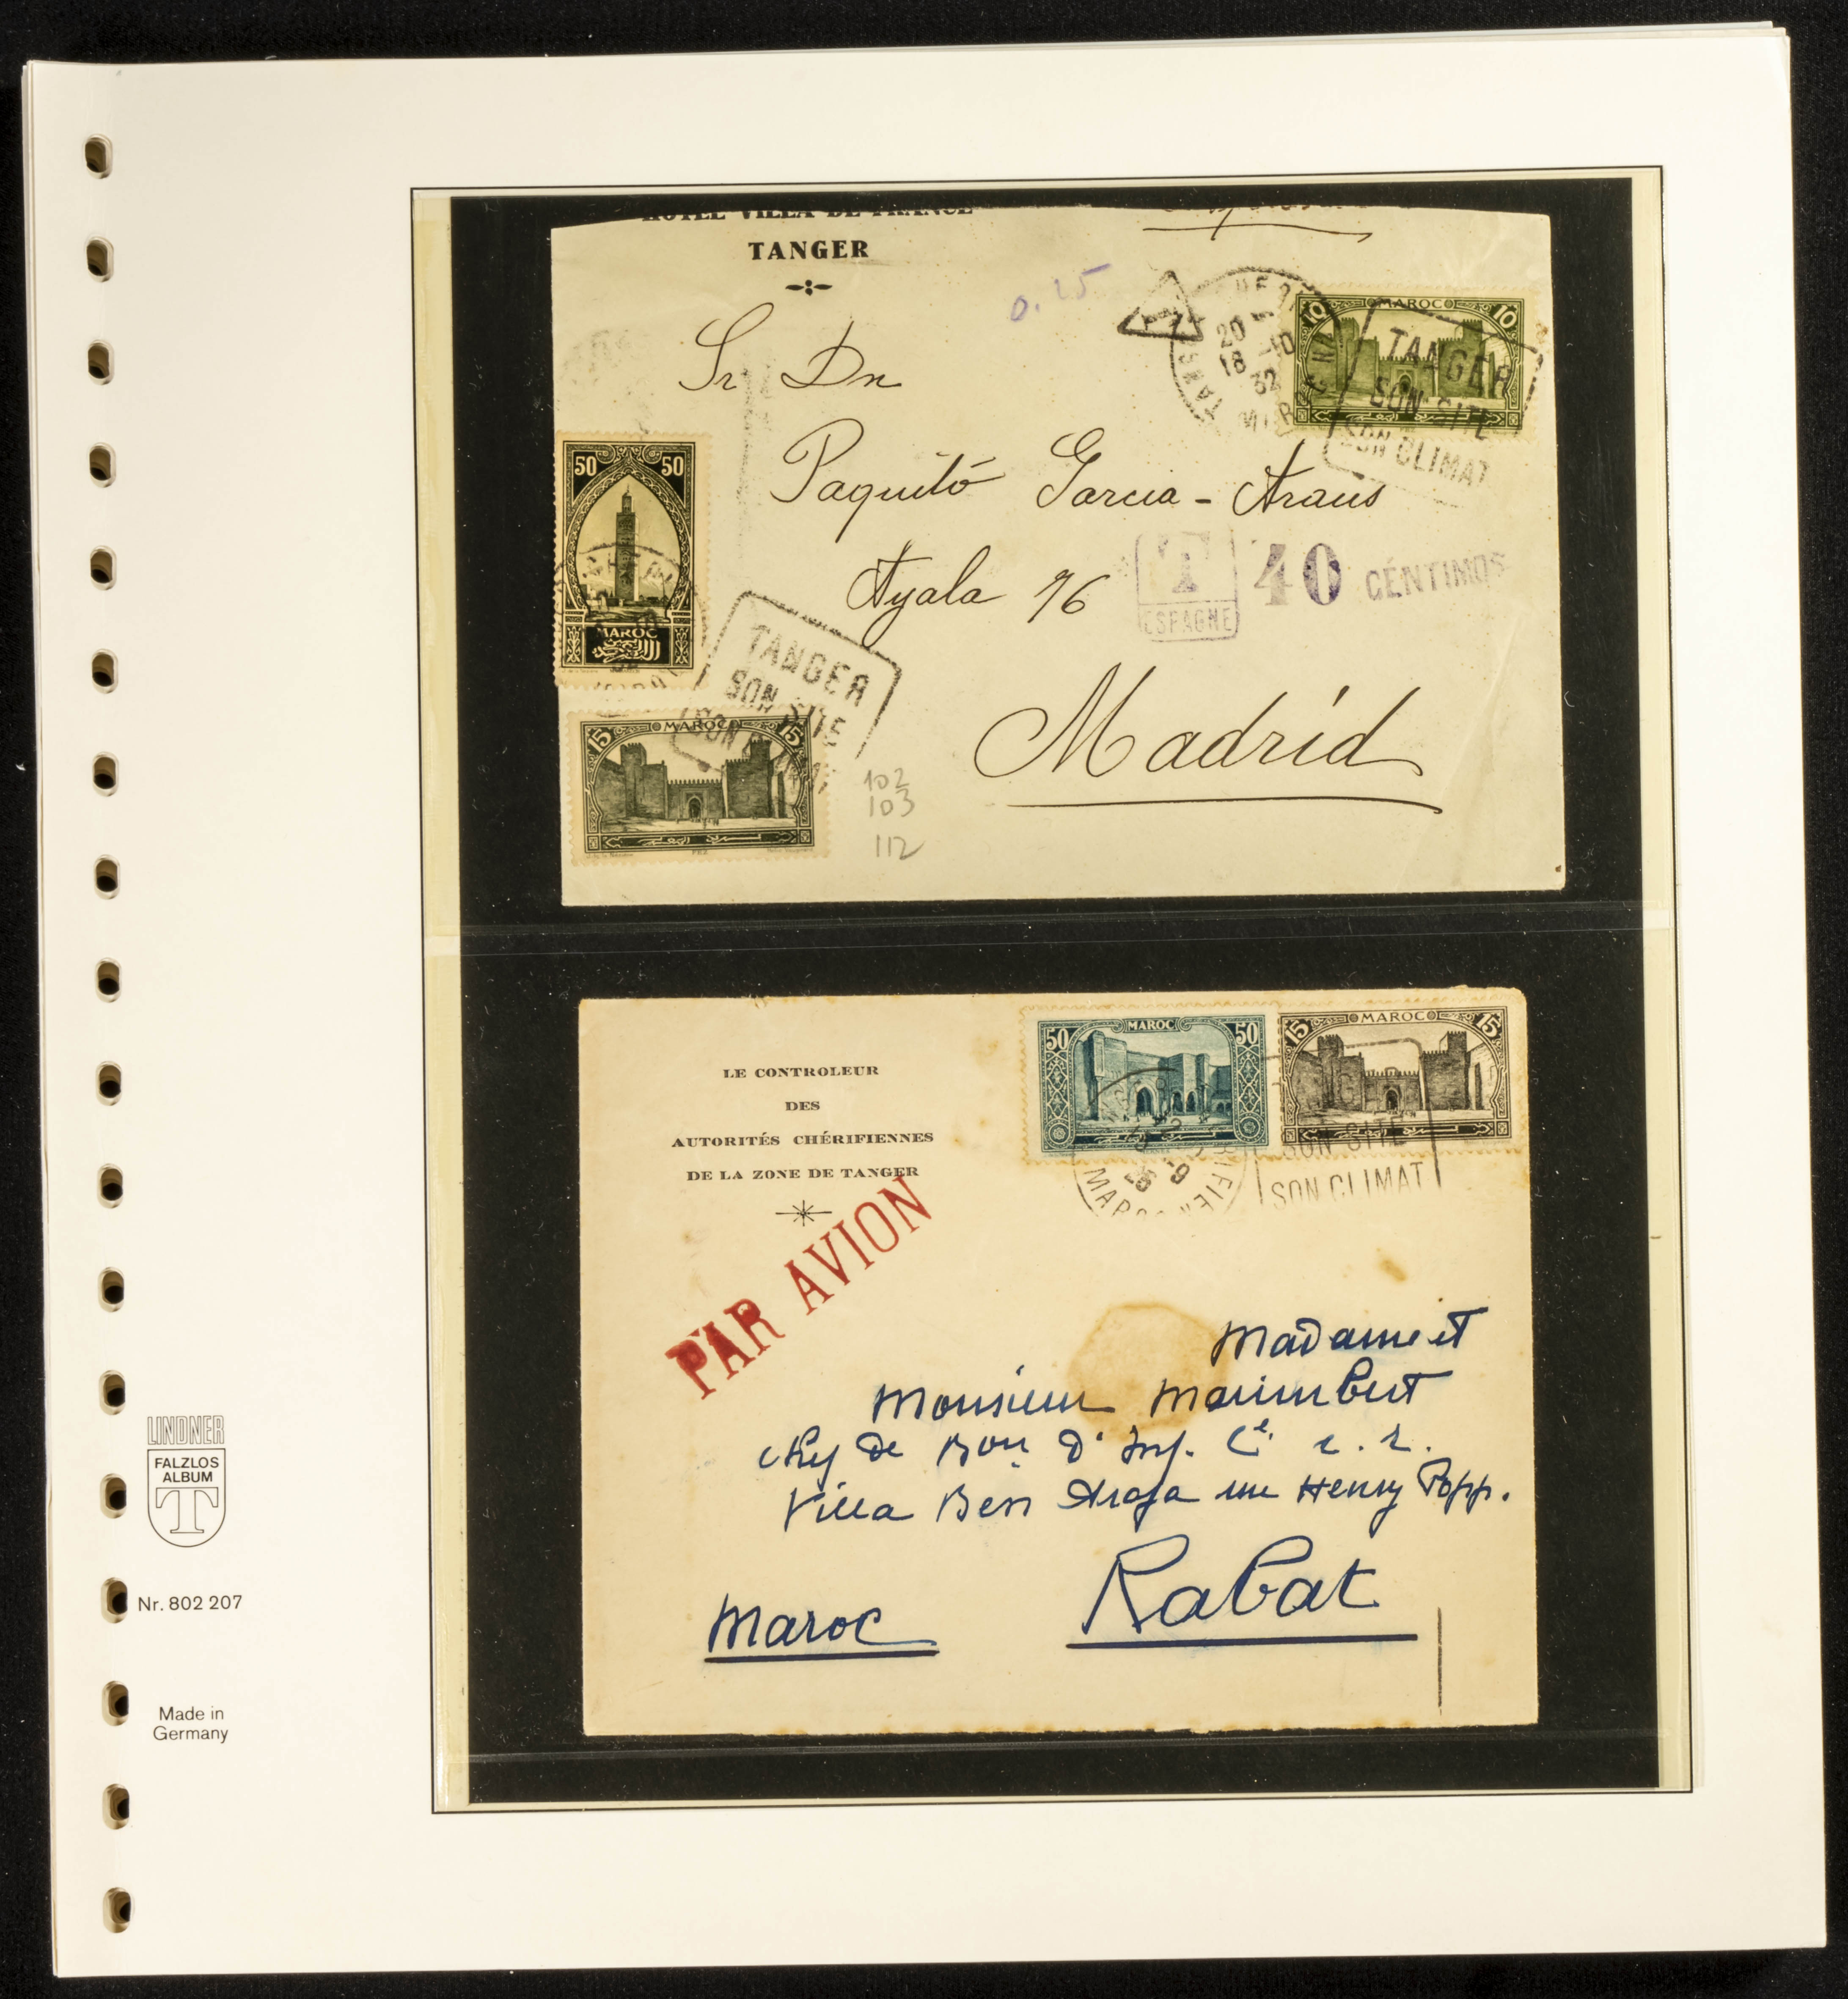 HOTEL VILLA DE FRANCE
TANGER
0.25
T
TANGER
20
18 -10
32
MAROC
10 MAROC 10
TANGER
SON SITE
SON CLIMAT
Sr Dn
Paquitó Garcia-Araus
Ayala 76
Madrid
T
ESPAGNE
40 CÉNTIMOS
50 50
MAROC
المغرب
TANGER
SON SITE
SON CLIMAT
15 MAROC 15
FEZ
102
103
112
LE CONTROLEUR
DES
AUTORITÉS CHÉRIFIENNES
DE LA ZONE DE TANGER
PAR AVION
50 MAROC 50
15 MAROC 15
MAROC
SON SITE
SON CLIMAT
Madame et
Monsieur Marimbert
de Bon d' Inf.
Villa Ben Arafa rue Henry Popp.
Rabat
Maroc
LINDNER
FALZLOS
ALBUM
T
Nr. 802 207
Made in
Germany